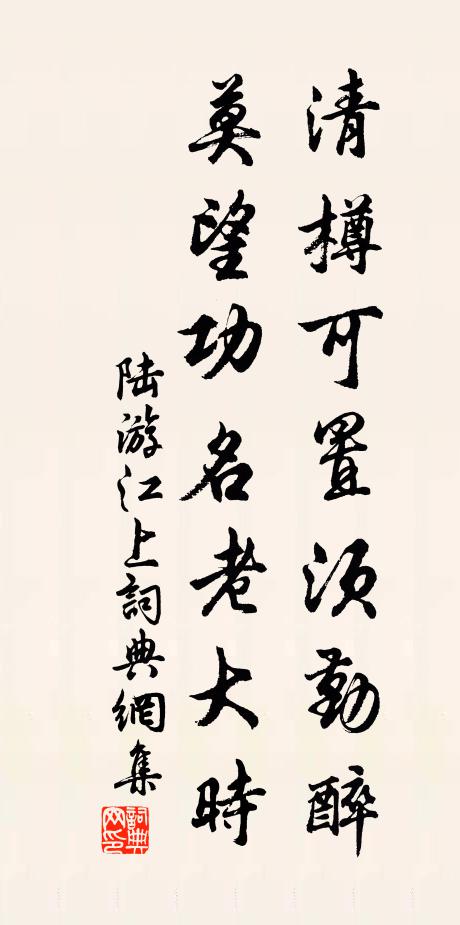 清樽可置須勤醉
莫望功名老大時
陸游江上詞典網集
詞典網印